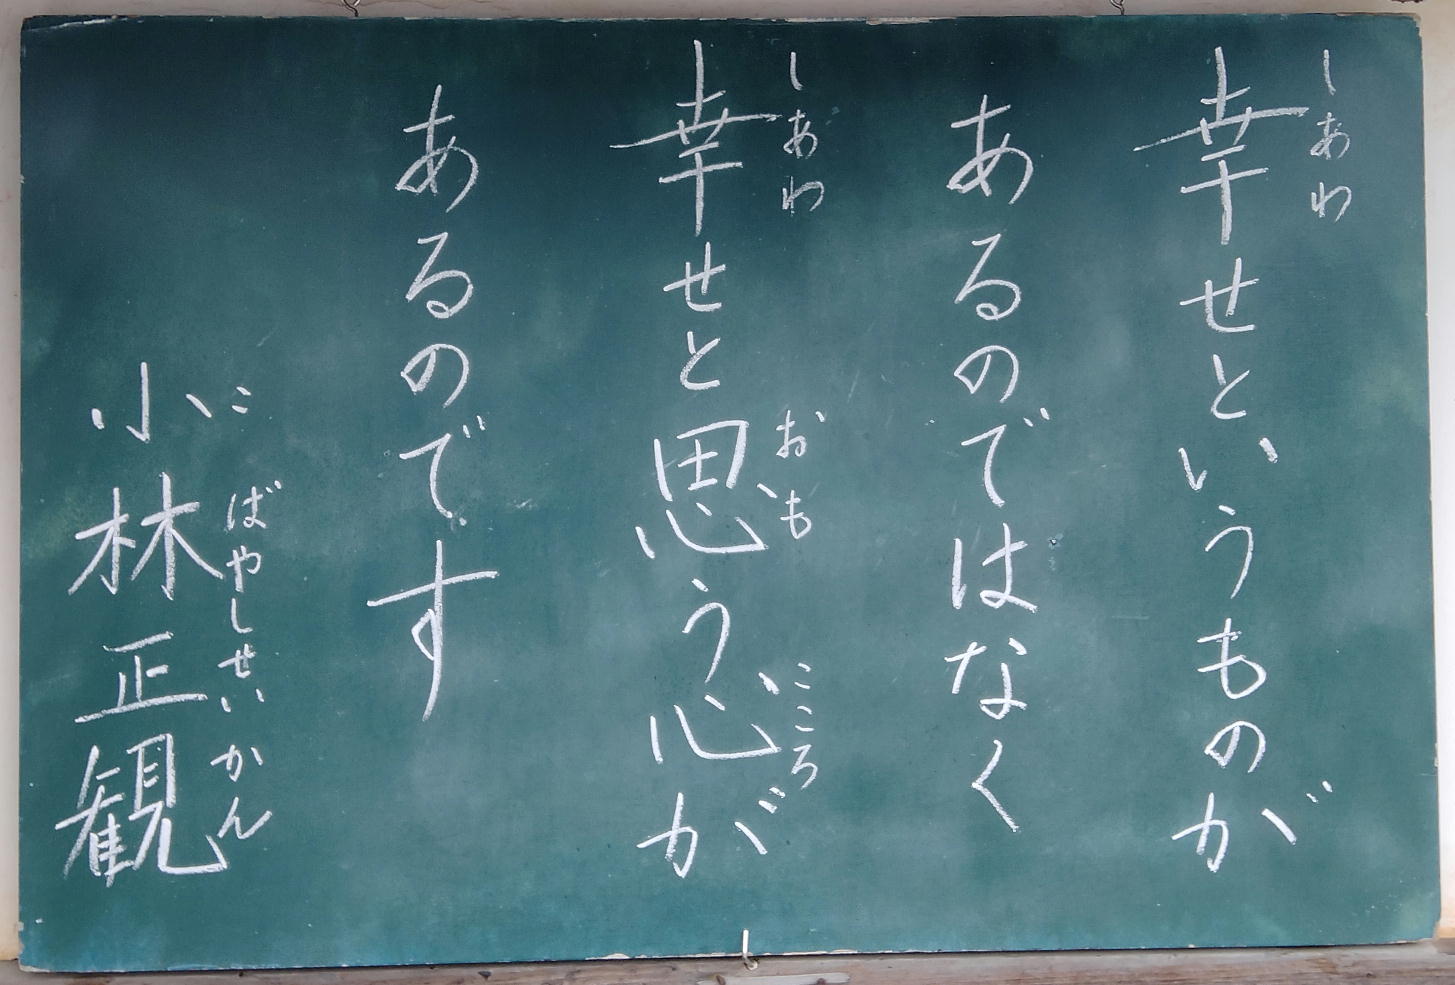 幸せというものが
しあわ
あるのではなく
幸せと思う心が
しあわ おも こころ
あるのです
小林正観
こばやしせいかん